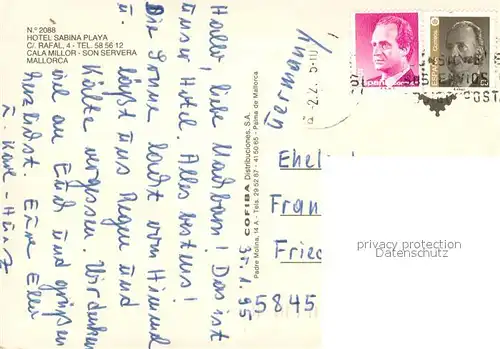 N.º 2088
HOTEL SABINA PLAYA
C/. RAFAL, 4 - TEL. 58 56 12
CALA MILLOR - SON SERVERA
MALLORCA
Hallo, liebe Nachbarn! Das ist
unser Hotel. Alles bestens!
Die Sonne lacht vom Himmel
u. läßt uns Regen und
Kälte vergessen. Wir denken
viel an Euch und grüßen
herzlichst. Eure Ellen
u. Karl-Heinz
31.1.95
COFIBA Distribuciones, S.A.
Padre Molina, 14 A - Tels. 29 52 87 - 41 50 65 - Palma de Mallorca
Germany
Ehel
Fran
Fried
5845
privacy protection
Datenschutz